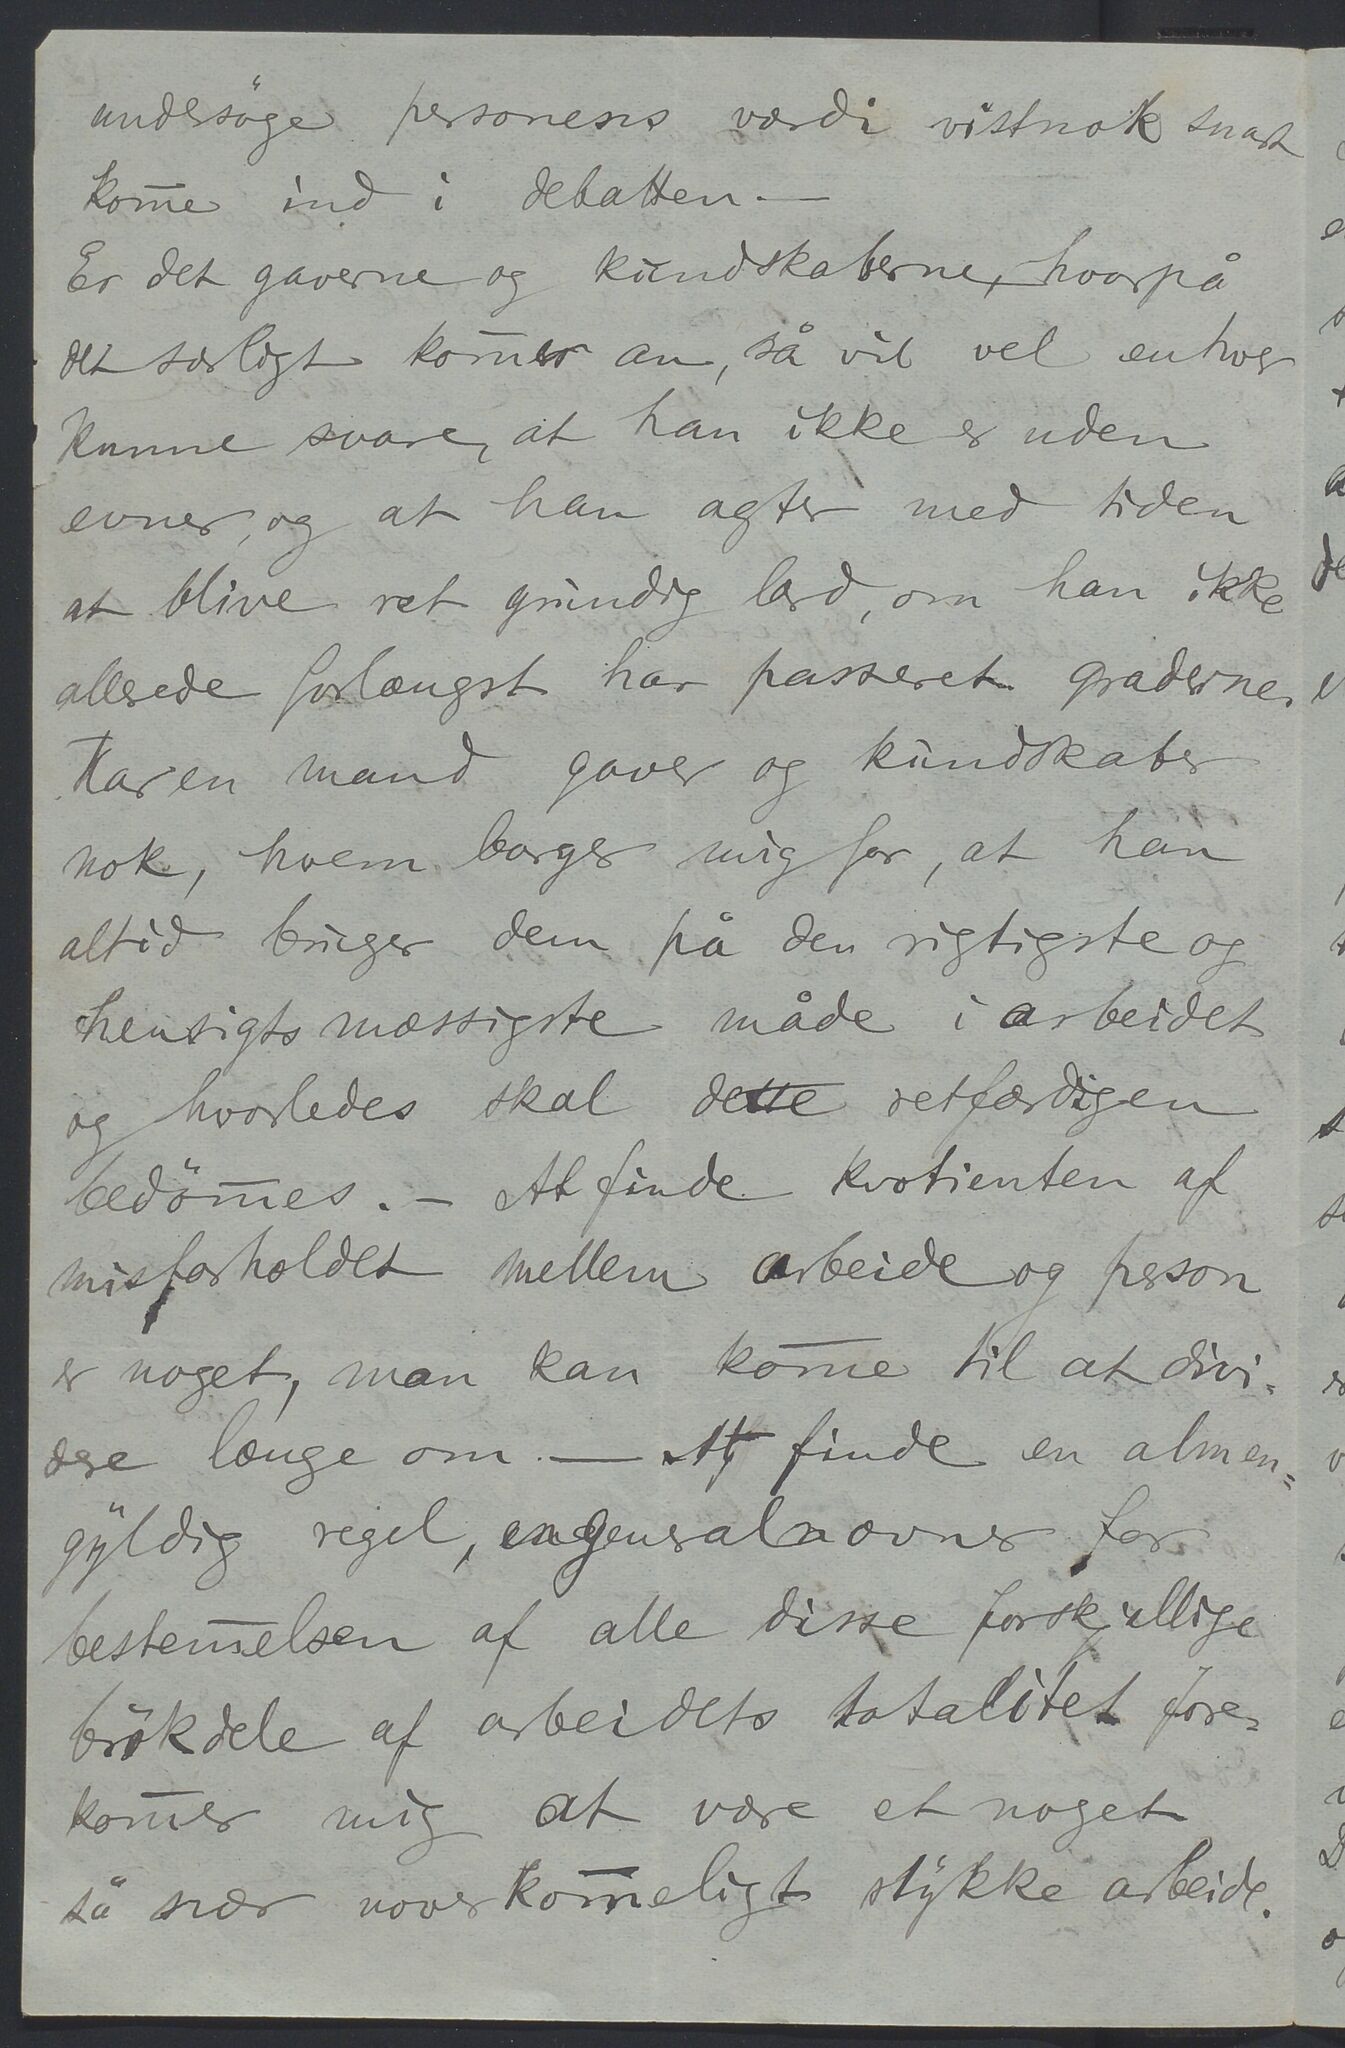 undersöge personens værdi vistnok snart
kom̄e ind i debatten.—
Er det gaverne og kundskaberne, hvorpå
det særligt kom̄er an, så vil vel enhver
kunne svare, at han ikke er uden
evner, og at han agter med tiden
at blive ret grundig lærd, om han ikke
allerede forlængst har passeret graderne.
Har en mand gaver og kundskaber
nok, hvem borger mig for, at han
altid bruger dem på den rigtigste og
hensigtsmæssigste måde i arbeidet
og hvorledes skal dette retfærdigen
bedöm̄es. — At finde kvotienten af
misforholdet mellem arbeide og person
er noget, man kan kom̄e til at divi-
dere længe om — At finde en almen=
gÿldig regel, en generalnævner for
bestem̄elsen af alle disse forskjellige
brökdele af arbeidets totalitet fore-
kom̄er mig at være et noget
så nær uoverkom̄eligt stÿkke arbeide.